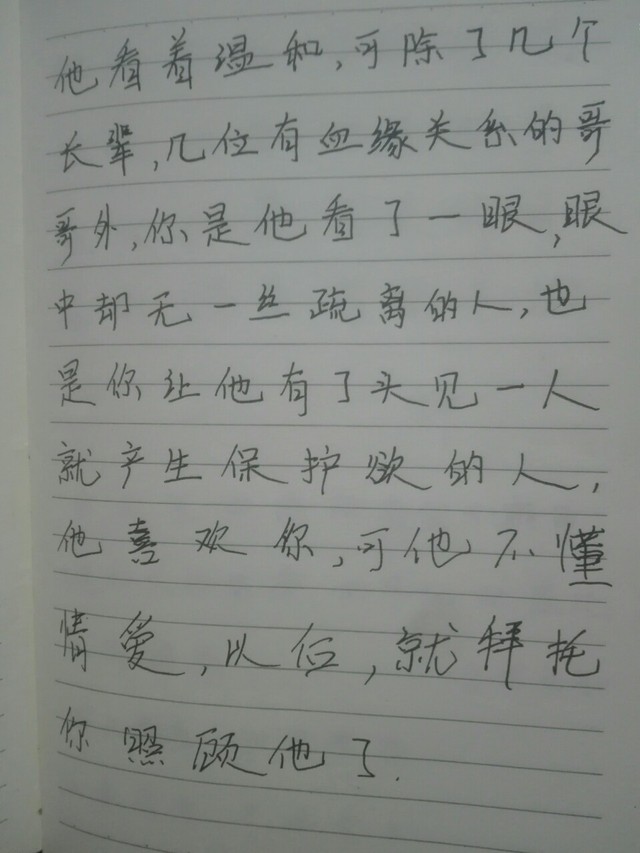 他看着温和,可除了几个
长辈,几位有血缘关系的哥
哥外,你是他看了一眼,眼
中却无一丝疏离的人,也
是你让他有了头见一人
就产生保护欲的人,
他喜欢你,可他不懂
情爱,以后,就拜托
你照顾他了.